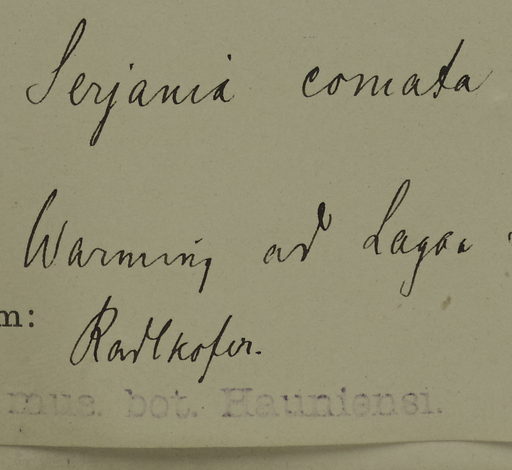 Serjania comata
Warming ad Lagoa
m:
Radlkofer.
mus. bot. Hauniensi.